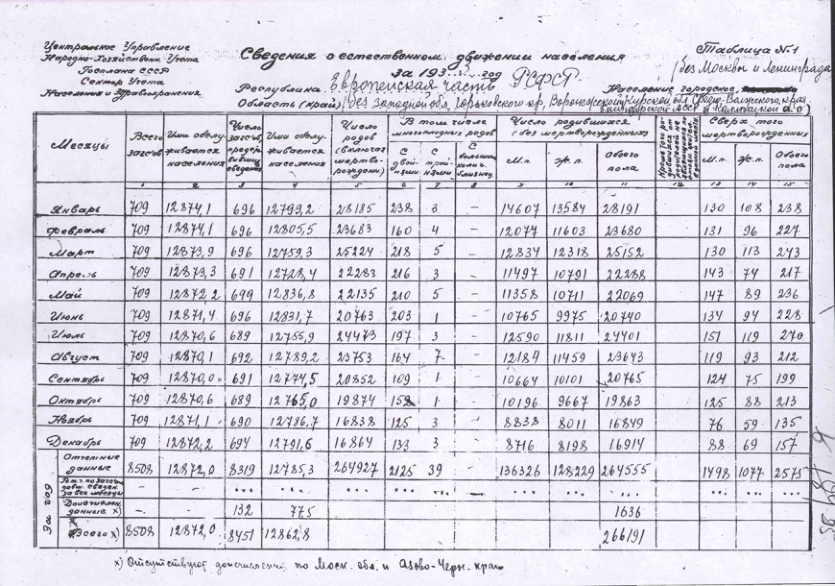 Центральное Управление
Народно-Хозяйств. Учета
Госплана СССР
Сектор Учета
Населения и Здравоохранения
Сведения о естественном движении населения
за 193......год
Таблица №1
(без Москвы и Ленинграда
Республика Европейская часть РСФСР
Население городское,
Область (край) (без Западной обл, Горьковского кр, Воронежской, Курской обл, Средне-Волжского края,
Башкирской АССР и Калмыцкой а.о)
Месяцы | Всего загсов | Ими обслуживается населения | Число загсов, представивших сведения | Ими обслуживается населения | Число родов (включая мертворождения) | В том числе многоплодных родов | Число родившихся (без мертворожденных) | Сверх того мертворожденных
С двойнями | С тройнями | С | М.п. | Ж.п. | Обоего пола | М.п. | Ж.п. | Обоего пола
1 2 3 4 5 6 7 8 9 10 11 12 13 14 15
Январь 709 12874,1 696 12799,2 28185 238 3 – 14607 13584 28191 130 108 238
Февраль 709 12874,1 696 12805,5 23683 160 4 – 12077 11603 23680 131 96 227
Март 709 12873,9 696 12759,3 25224 218 5 – 12834 12318 25152 130 113 243
Апрель 709 12873,3 691 12728,4 22283 216 3 – 11497 10791 22288 143 74 217
Май 709 12872,2 699 12836,8 22135 210 5 – 11358 10711 22069 147 89 236
Июнь 709 12871,4 696 12831,7 20763 203 1 – 10765 9975 20740 134 94 228
Июль 709 12870,6 689 12755,9 24473 197 3 – 12590 11811 24401 151 119 270
Август 709 12870,1 692 12789,2 23753 164 7 – 12184 11459 23643 119 93 212
Сентябрь 709 12870,0 691 12774,5 20852 109 1 – 10664 10101 20765 124 75 199
Октябрь 709 12870,6 689 12765,0 19874 158 1 – 10196 9667 19863 125 88 213
Ноябрь 709 12871,1 690 12786,7 16838 125 3 – 8838 8011 16849 76 59 135
Декабрь 709 12872,2 694 12791,6 16864 133 3 – 8716 8198 16914 88 69 157
За год
Отчетные данные 8508 12872,0 8319 12785,3 264927 2125 39 – 136326 128229 264555 1498 1077 2575
В т.ч. по загсам, давш. сведен. за все месяцы – – ... ... ... ... ... ... ... ... ... ... ... ...
данные х) – – 132 775 1636
Всего х) 8508 12872,0 8451 12862,8 266191
х) Отсутствуют досчисления по Моск. обл. и Азово-Черн. краю